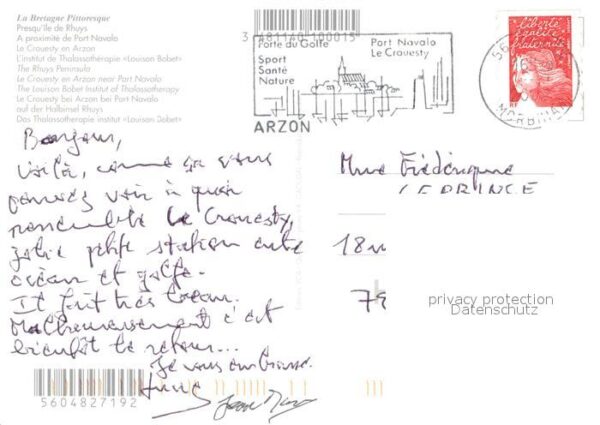 La Bretagne Pittoresque
Presqu'île de Rhuys
A proximité de Port Navalo
Le Crouesty en Arzon
L'institut de Thalassothérapie «Louison Bobet»
The Rhuys Peninsula
Le Crouesty en Arzon near Port Navalo
The Louison Bobet Institut of Thalassotherapy
Le Crouesty bei Arzon bei Port Navalo
auf der Halbinsel Rhuys
Das Thalassotherapie institut «Louison Bobet»
3 A811A0 100015
Porte du Golfe
Sport
Santé
Nature
Port Navalo
Le Crouesty
ARZON
liberté
égalité
fraternité
RF
56
MORBIHAN
Bonjour,
Voilà, comme ça vous
pouvez voir à quoi
ressemble Le Crouesty,
jolie petite station entre
océan et golfe.
Il fait très beau.
Malheureusement c'est
bientôt le retour...
Je vous embrasse.
Mme Frédérique
LEPRINCE
18
79
privacy protection
Datenschutz
5604827192